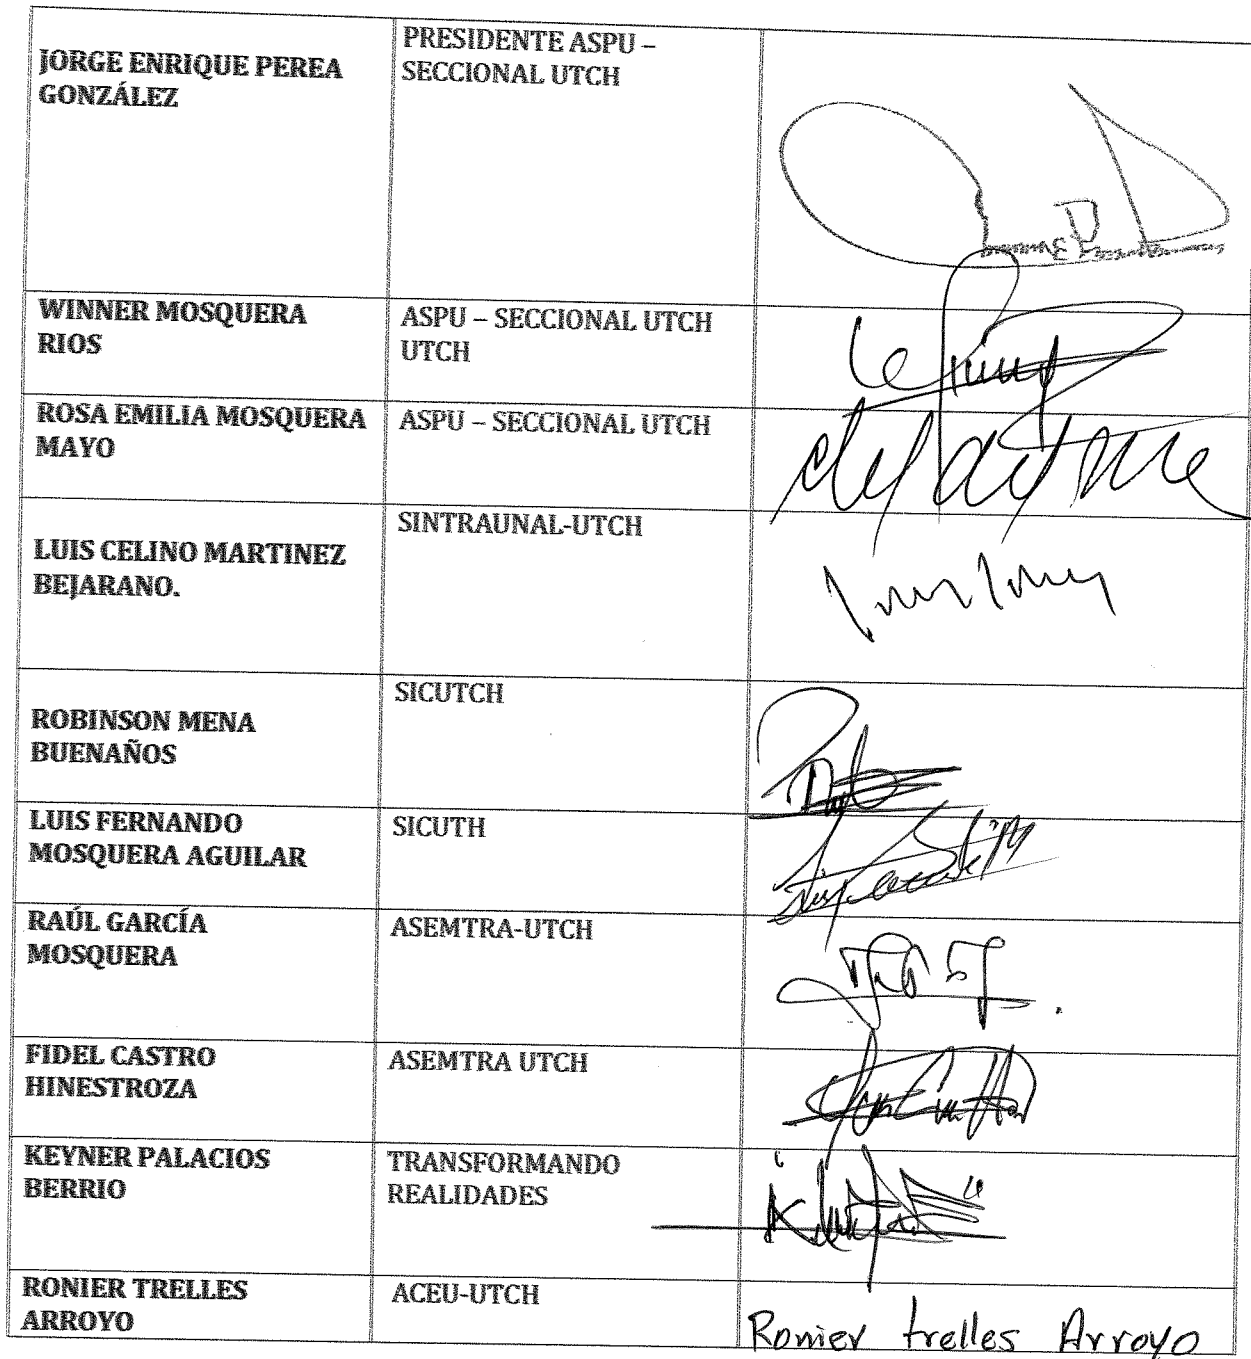 JORGE ENRIQUE PEREA
GONZÁLEZ
PRESIDENTE ASPU –
SECCIONAL UTCH
WINNER MOSQUERA
RIOS
ASPU – SECCIONAL UTCH
UTCH
ROSA EMILIA MOSQUERA
MAYO
ASPU – SECCIONAL UTCH
LUIS CELINO MARTINEZ
BEJARANO.
SINTRAUNAL-UTCH
ROBINSON MENA
BUENAÑOS
SICUTCH
LUIS FERNANDO
MOSQUERA AGUILAR
SICUTH
RAÚL GARCÍA
MOSQUERA
ASEMTRA-UTCH
FIDEL CASTRO
HINESTROZA
ASEMTRA UTCH
KEYNER PALACIOS
BERRIO
TRANSFORMANDO
REALIDADES
RONIER TRELLES
ARROYO
ACEU-UTCH
Ronier trelles Arroyo